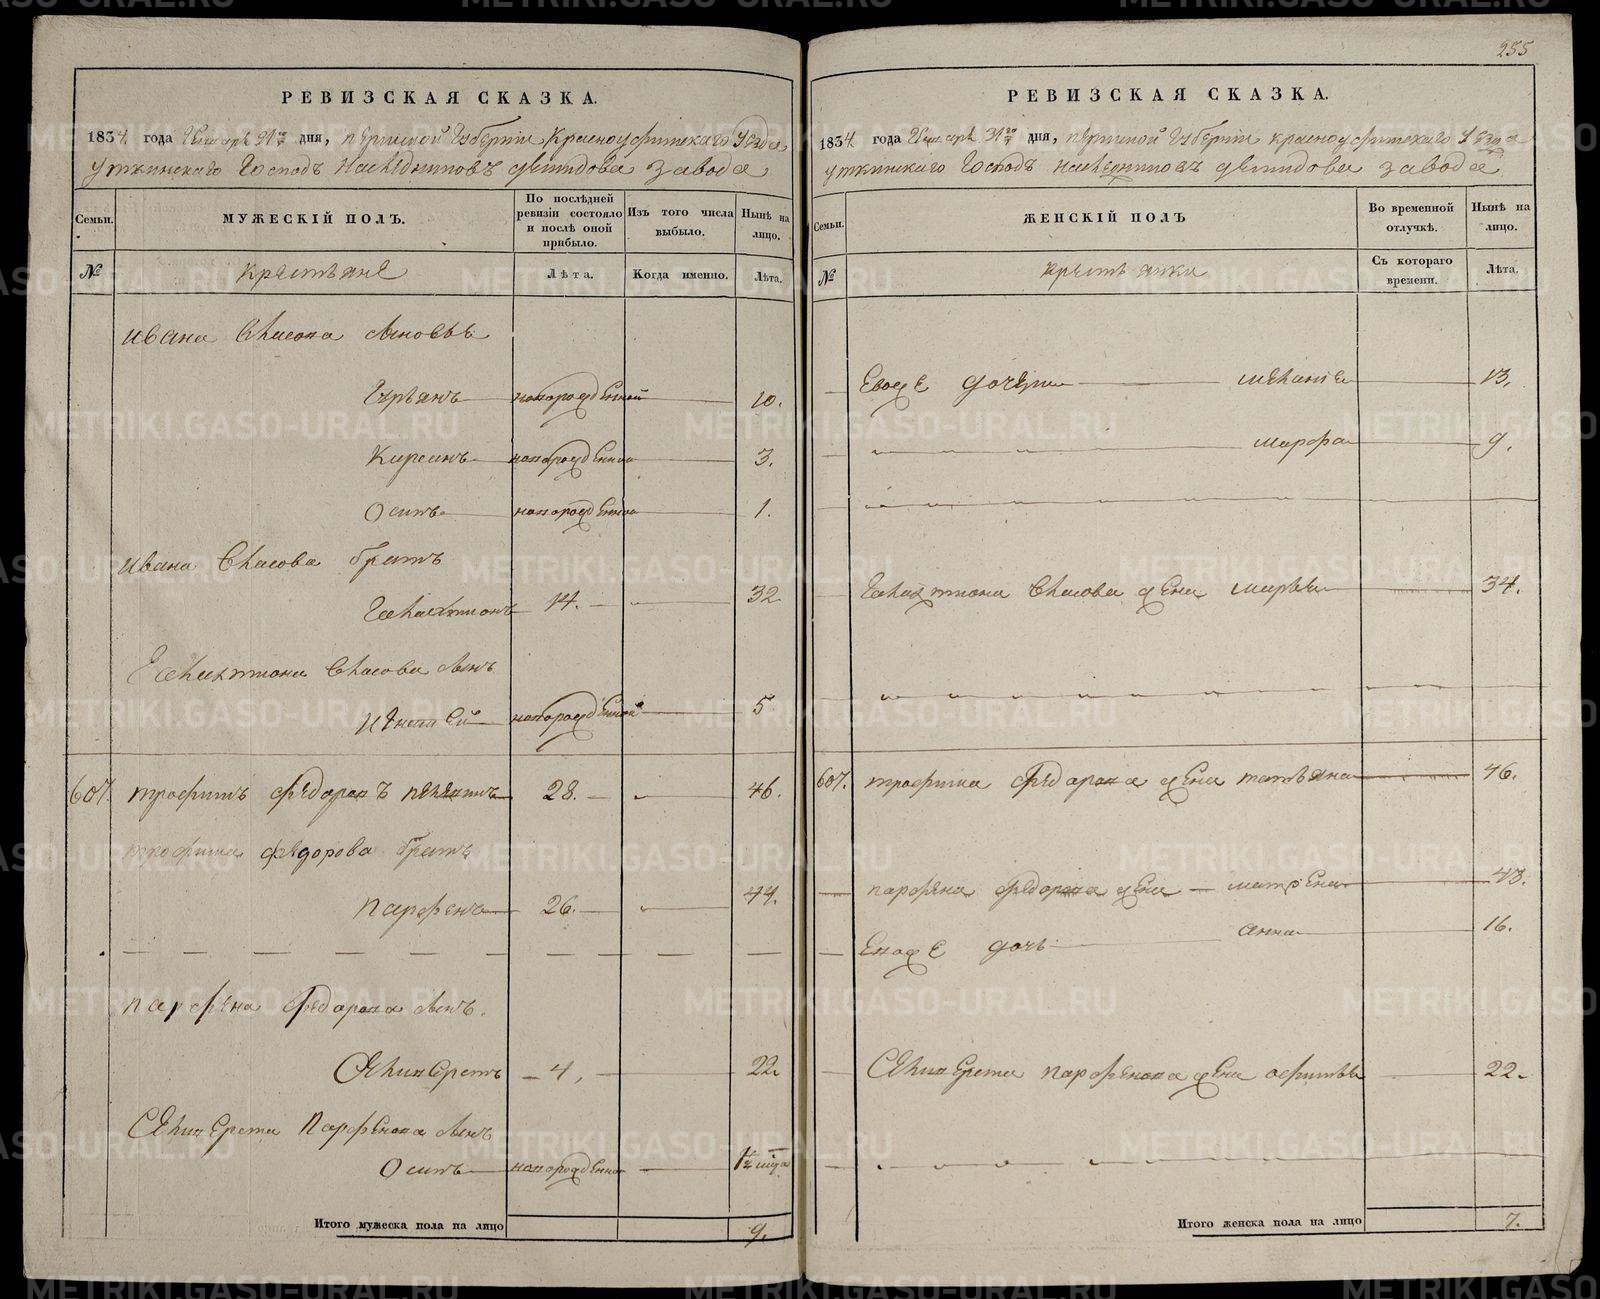 255
РЕВИЗСКАЯ СКАЗКА.
1834 года Генваря 31го дня, пермской губернии красноуфимскаго уезда
уткинскаго Господъ наследниковъ демидова завода
Семьи.
МУЖЕСКІЙ ПОЛЪ.
По послѣдней ревизіи состояло и послѣ оной прибыло.
Изъ того числа выбыло.
Нынѣ на лицо.
№
крестьяне
Лѣта.
Когда именно.
Лѣта.
ивана Власова сыновья
новорожденной 10.
новорожденной 3.
Осипъ новорожденной 1.
ивана Власова братъ
Галактионъ 14. 32
Галактиона Власова сынъ
новорожденной 5
607. трофимъ федоровъ 28. 46.
трофима федорова братъ
парфенъ 26. 44.
парфена федорова сынъ.
Селиверстъ 4, 22
Селиверста Парфенова сынъ
Осипъ новорожденной
Итого мужеска пола на лицо 9.
РЕВИЗСКАЯ СКАЗКА.
1834 года Генваря 31го дня, пермской губернии красноуфимскаго уезда
уткинскаго Господъ наследниковъ демидова завода
Семьи.
ЖЕНСКІЙ ПОЛЪ
Во временной отлучкѣ.
Нынѣ на лицо.
№
крестьянки
Съ котораго времени.
Лѣта.
Евоже дочери маланья 13.
марфа 9.
Галактиона Власова жена марья 34.
607. трофима федорова жена татьяна 46.
парфена федорова жена матрена 43.
Евоже дочь анна 16.
Селиверста парфенова жена афимья 22.
Итого женска пола на лицо 7.
METRIKI.GASO-URAL.RU